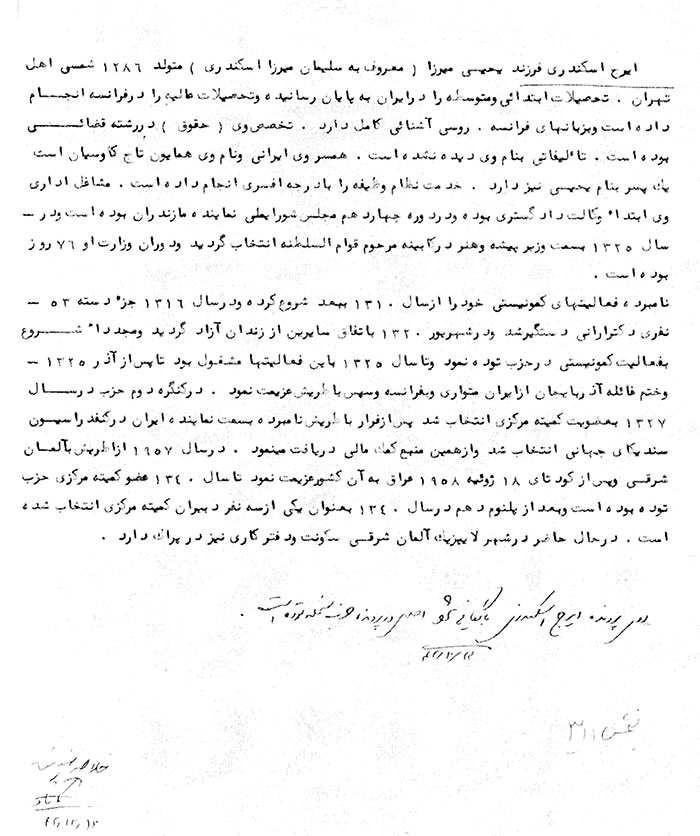 ایرج اسکندری فرزند یحیی میرزا ( معروف به سلیمان میرزا اسکندری ) متولد ۱۲۸۶ شمسی اهل
تهران . تحصیلات ابتدائی ومتوسطه را در ایران به پایان رسانیده وتحصیلات عالیه را در فرانسه انجام
داده است وبزبانهای فرانسه . روسی آشنائی کامل دارد . تخصص وی ( حقوق ) در رشته قضائی
بوده است . تألیفاتی بنام وی دیده نشده است . همسر وی ایرانی ونام وی همایون تاج کاوسیان است
یك پسر بنام یحیی نیز دارد . خدمت نظام وظیفه را با درجه افسری انجام داده است . مشاغل اداری
وی ابتدا° وکالت دادگستری بوده ودر دوره چهاردهم مجلس شورایملی نماینده مازندران بوده است ودر –
سال ۱۳۲۵ بسمت وزیر پیشه وهنر در کابینه مرحوم قوام السلطنه انتخاب گردید ودوران وزارت او ۷۶ روز
بوده است .
نامبرده فعالیتهای کمونیستی خود را از سال ۱۳۱۰ ببعد شروع کرده ودر سال ۱۳۱۶ جز° دسته ۵۳ –
نفری دکتر ارانی دستگیر شد ودر شهریور ۱۳۲۰ باتفاق سایرین از زندان آزاد گردید ومجددا° شروع
بفعالیت کمونیستی در حزب توده نمود وتا سال ۱۳۲۵ باین فعالیتها مشغول بود تا پس از آذر ۱۳۲۵ –
وختم غائله آذربایجان از ایران متواری وبفرانسه وسپس باطریش عزیمت نمود . در کنگره دوم حزب در سال
۱۳۲۷ بعضویت کمیته مرکزی انتخاب شد پس از فرار باطریش نامبرده بسمت نماینده ایران در کنفدراسیون
سندیکای جهانی انتخاب شد واز همین منبع کمك مالی دریافت مینمود . در سال ۱۹۵۷ از اطریش بآلمان
شرقی وپس از کودتای ۱۸ ژوئیه ۱۹۵۸ عراق به آن کشور عزیمت نمود تا سال ۱۳۴۰ عضو کمیته مرکزی حزب
توده بوده است وبعد از پلنوم دهم در سال ۱۳۴۰ بعنوان یکی از سه نفر دبیران کمیته مرکزی انتخاب شده
است . در حال حاضر در شهر لایپزیك آلمان شرقی سکونت ودفتر کاری نیز در پراك دارد .
پرونده ایرج اسکندری
۳۱۱